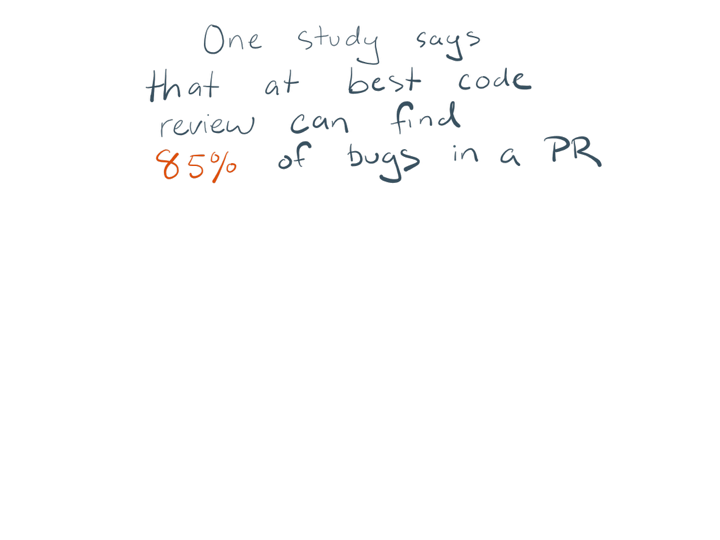 One study says
that at best code
review can find
85% of bugs in a PR